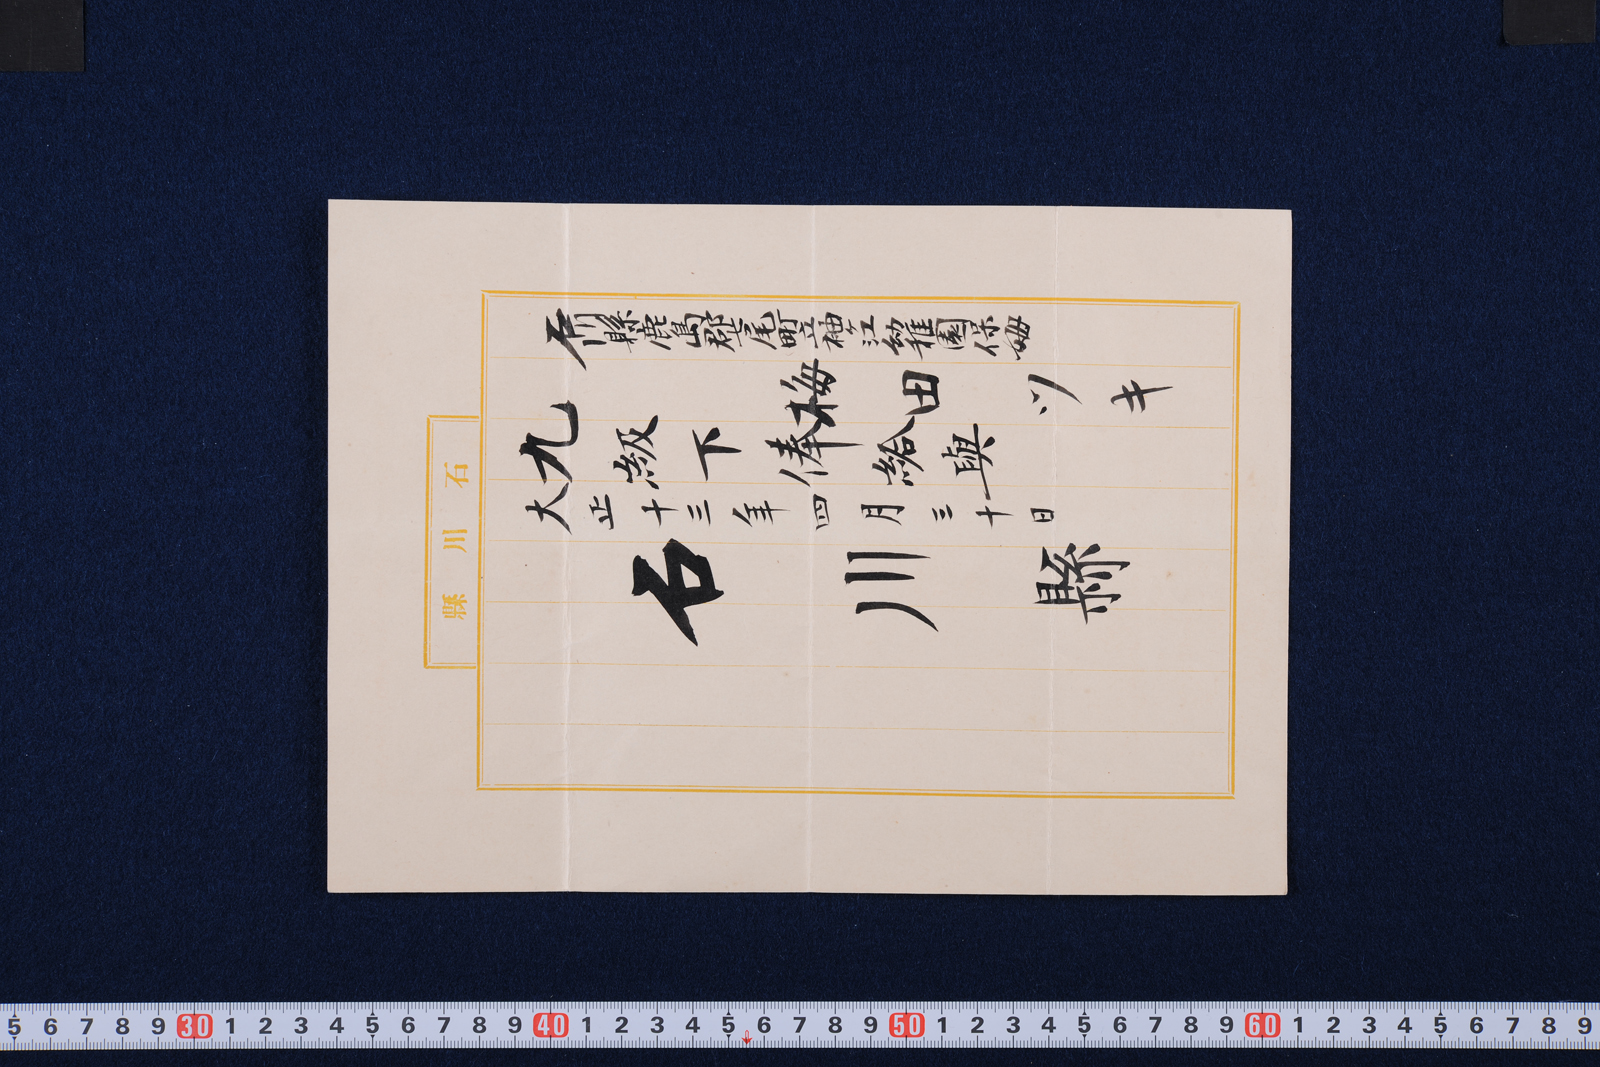 石川縣鹿島郡七尾町立袖ケ江幼稚園保姆
梅田ツキ
九級下俸給與
大正十三年四月三十日
石川縣
石川縣
5 6 7 8 9 30 1 2 3 4 5 6 7 8 9 40 1 2 3 4 5 6 7 8 9 50 1 2 3 4 5 6 7 8 9 60 1 2 3 4 5 6 7 8 9